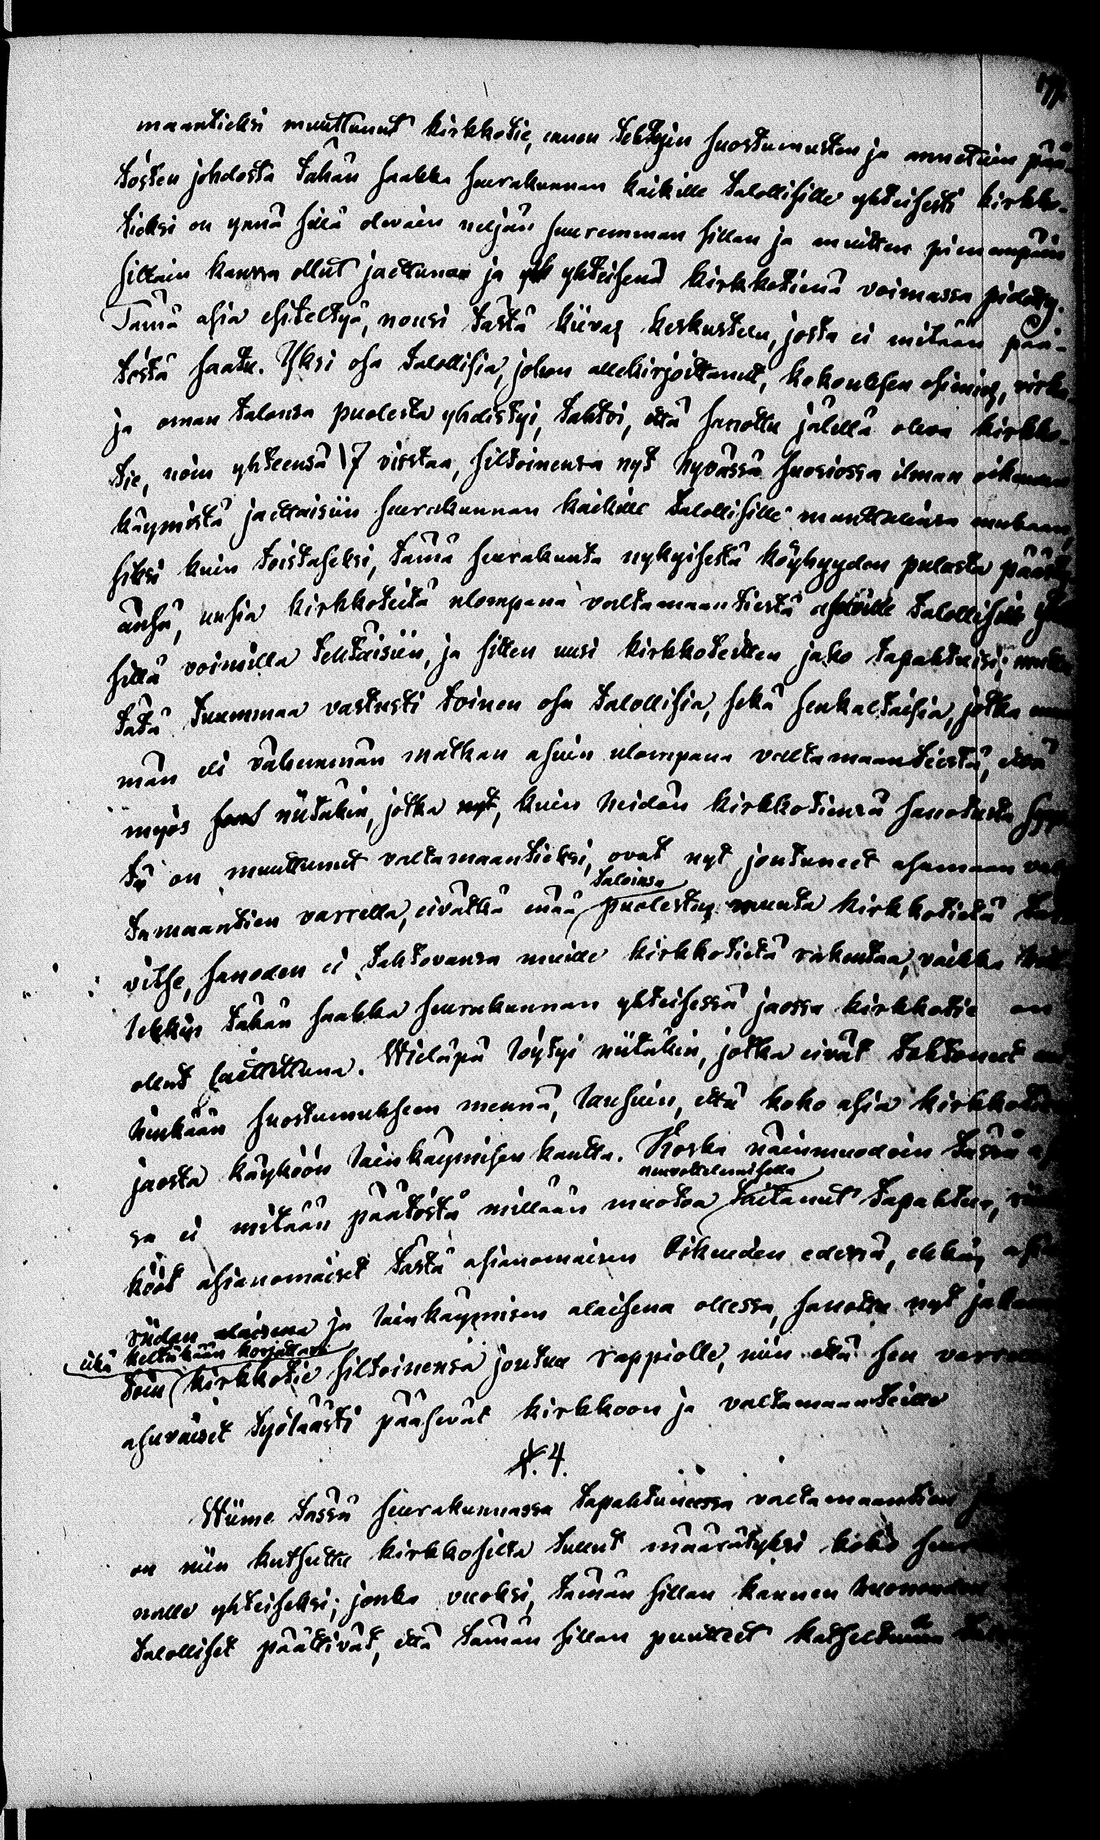 maantieksi muuttunut kirkkotie, ennen tehtyin suostumusten ja annettuin pää-
tösten johdosta tähän saakka seurakunnan kaikille talollisille yhteisesti kirkko-
tieksi on ynnä sillä olevain neljän suuremman sillan ja muitten pienempäin
siltain kanssa ollut jaettuna ja yhteisenä kirkkotienä voimassa pidetty.
Tämä asia esiteltyä, nousi tästä kiivas keskustelu, josta ei mitään pää-
töstä saatu. Yksi osa talollisia, johon allekirjoittanut, kokouksen esimies, virka
ja oman talonsa puolesta yhdistyi, tahtoi, että sanottu jälellä oleva kirkko-
tie, noin yhteensä 17 virstaa, siltoinensa nyt hyvässä suosiossa ilman oikeuden
käymistä jaettaisiin seurakunnan kaikille talollisille manttaliensa mukaan,
siksi kuin toistaseksi, tämä seurakunta nykyisestä köyhyyden pulasta päästy
änsä, uusia kirkkoteitä ulompana valtamaantiestä asuville talollisille
sillä voimilla tehtäisiin, ja sitten uusi kirkkoteitten jako tapahtuisi; mutta
tätä tuummaa vastusti toinen osa talollisia, sekä senkaltaisia, jotka
män eli vähemmän matkan asuin ulompana valtamaantiestä, että
myös niitäkin, jotka, kuin heidän kirkkotiensä sanotusta
ty on muuttunut valtamaantieksi, ovat nyt joutuneet asumaan val
tamaantien varrella, eivätkä enää talonsa puolesta muuta kirkkotietä tar
vitse, sanoden ei tahtovansa muille kirkkotietä rakentaa, vaikka
lekkin tähän saakka seurakunnan yhteisessä jaossa kirkkotie on
ollut laitettuna. Wieläpä löytyi niitäkin, jotka eivät tahtoneet
hinkään suostumukseen mennä, lausuin, että koko asia kirkkotien
jaosta käyköön lainkäymisen kautta. Koska näinmuodoin tässä
sa ei mitään päätöstä millään muotoa neuvottelemisella taitanut tapahtua,
kööt asianomaiset tästä asianomaisen Oikeuden edessä, ehkäs
riidan alaisena ja lainkäymisen alaisena ollessa, sanottu nyt
eikä keltäkään korjattava
toin kirkkotie siltoinensa joutuu rappiolle, niin että sen
asuvaiset työläästi pääsevät kirkkoon ja valtamaantielle
§. 4.
Wiime tässä seurakunnassa tapahtuneessa valtamaantien
on niin kutsuttu kirkkosilta tullut määrätyksi koko
nalle yhteiseksi; jonka vuoksi, tämän sillan kannen
talolliset päättivät, että tämän sillan puutteet